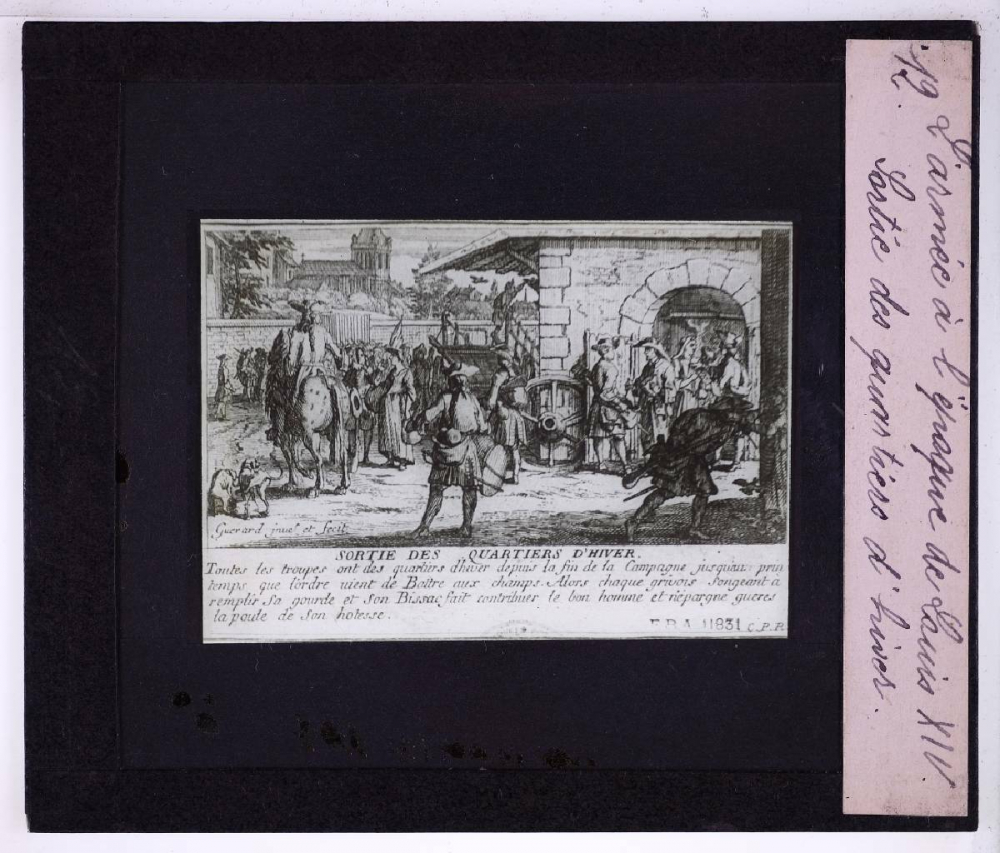 Guerard inuet et fecit
SORTIE DES QUARTIERS D'HIVER.
Toutes les troupes ont des quartiers d'hiver depuis la fin de la Campagne jusqu'au prin
temps que l'ordre uient de Battre aux champs. Alors chaque grivois Songeant a
remplir Sa gourde et Son Bissac fait contribuer le bon homme et n'epargne gueres
la poule de Son hotesse.
E.B.A. 11831 C.P.R.
12. L'armée à l'époque de Louis XIV.
Sortie des quartiers d'hiver.